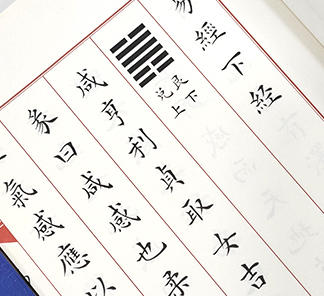 易經下經
艮下
兌上
咸亨利貞取女吉
彖曰咸感也柔
氣感應以